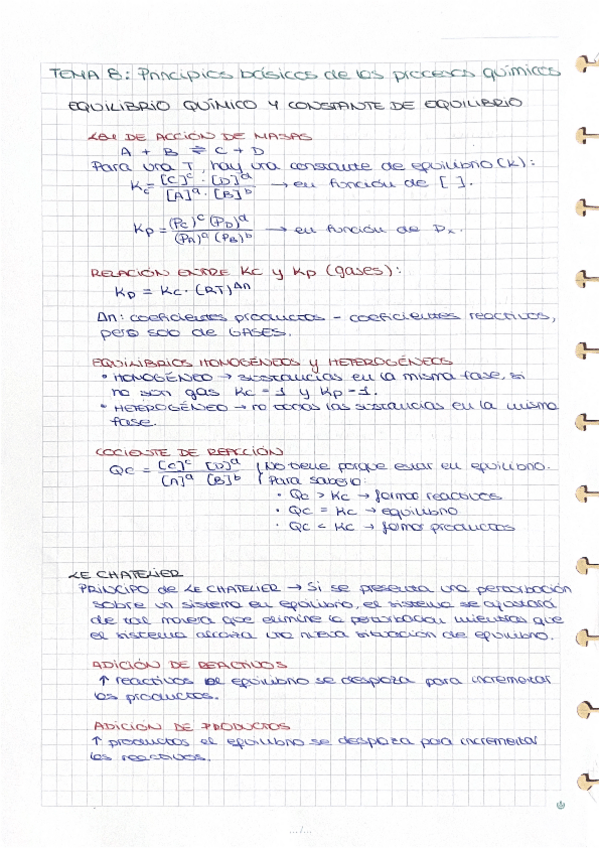 TEMA 8: Principios básicos de los procesos químicos
EQUILIBRIO QUÍMICO Y CONSTANTE DE EQUILIBRIO
LEY DE ACCIÓN DE MASAS
A + B ⇌ C + D
Para una T, hay una constante de equilibrio (K):
Kc = [C]^c · [D]^d / [A]^a · [B]^b → en función de [ ].
Kp = (Pc)^c (PD)^d / (PA)^a (PB)^b → en función de Px.
RELACIÓN ENTRE Kc y Kp (gases):
Kp = Kc · (RT)^Δn
Δn: coeficientes productos – coeficientes reactivos,
pero solo de GASES.
EQUILIBRIOS HOMOGÉNEOS y HETEROGÉNEOS
• HOMOGÉNEO → sustancias en la misma fase, si
no son gas Kc = 1 y Kp = 1.
• HETEROGÉNEO → no todas las sustancias en la misma
fase.
COCIENTE DE REACCIÓN
Qc = [C]^c [D]^d / [A]^a [B]^b { No tiene porque estar en equilibrio.
Para saberlo:
• Qc > Kc → formar reactivos
• Qc = Kc → equilibrio
• Qc < Kc → formar productos
LE CHATELIER
PRINCIPO de LE CHATELIER → Si se presenta una perturbación
sobre un sistema en equilibrio, el sistema se ajustará
de tal manera que elimine la perturbación mientras que
el sistema alcanza una nueva situación de equilibrio.
ADICIÓN DE REACTIVOS
↑ reactivos el equilibrio se desplaza para incrementar
los productos.
ADICIÓN DE PRODUCTOS
↑ productos el equilibrio se desplaza para incrementar
los reactivos.
.../...